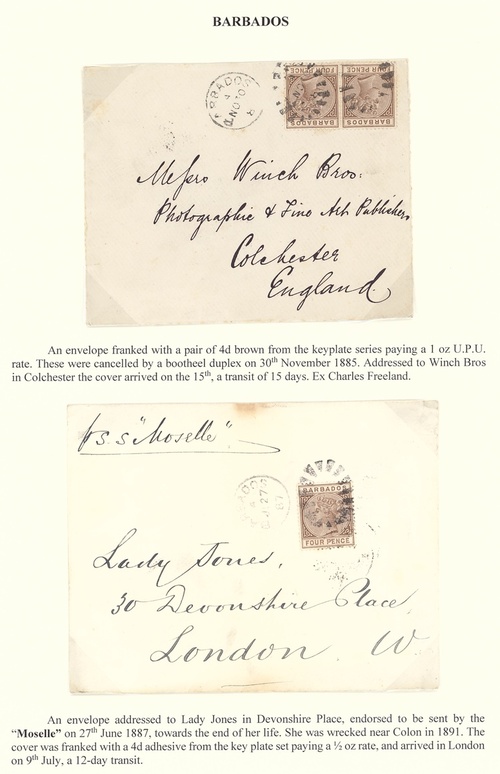 BARBADOS
BARBADOS
FOUR PENCE
BARBADOS
FOUR PENCE
BARBADOS
Messrs Winch Bros:
Photographic & Fine Art Publishers
Colchester
England
An envelope franked with a pair of 4d brown from the keyplate series paying a 1 oz U.P.U.
rate. These were cancelled by a bootheel duplex on 30th November 1885. Addressed to Winch Bros
in Colchester the cover arrived on the 15th, a transit of 15 days. Ex Charles Freeland.
p s.s "Moselle"
BARBADOS
JU 27
87
BARBADOS
FOUR PENCE
Lady Jones,
30 Devonshire Place,
London. W.
An envelope addressed to Lady Jones in Devonshire Place, endorsed to be sent by the
"Moselle" on 27th June 1887, towards the end of her life. She was wrecked near Colon in 1891. The
cover was franked with a 4d adhesive from the key plate set paying a ½ oz rate, and arrived in London
on 9th July, a 12-day transit.